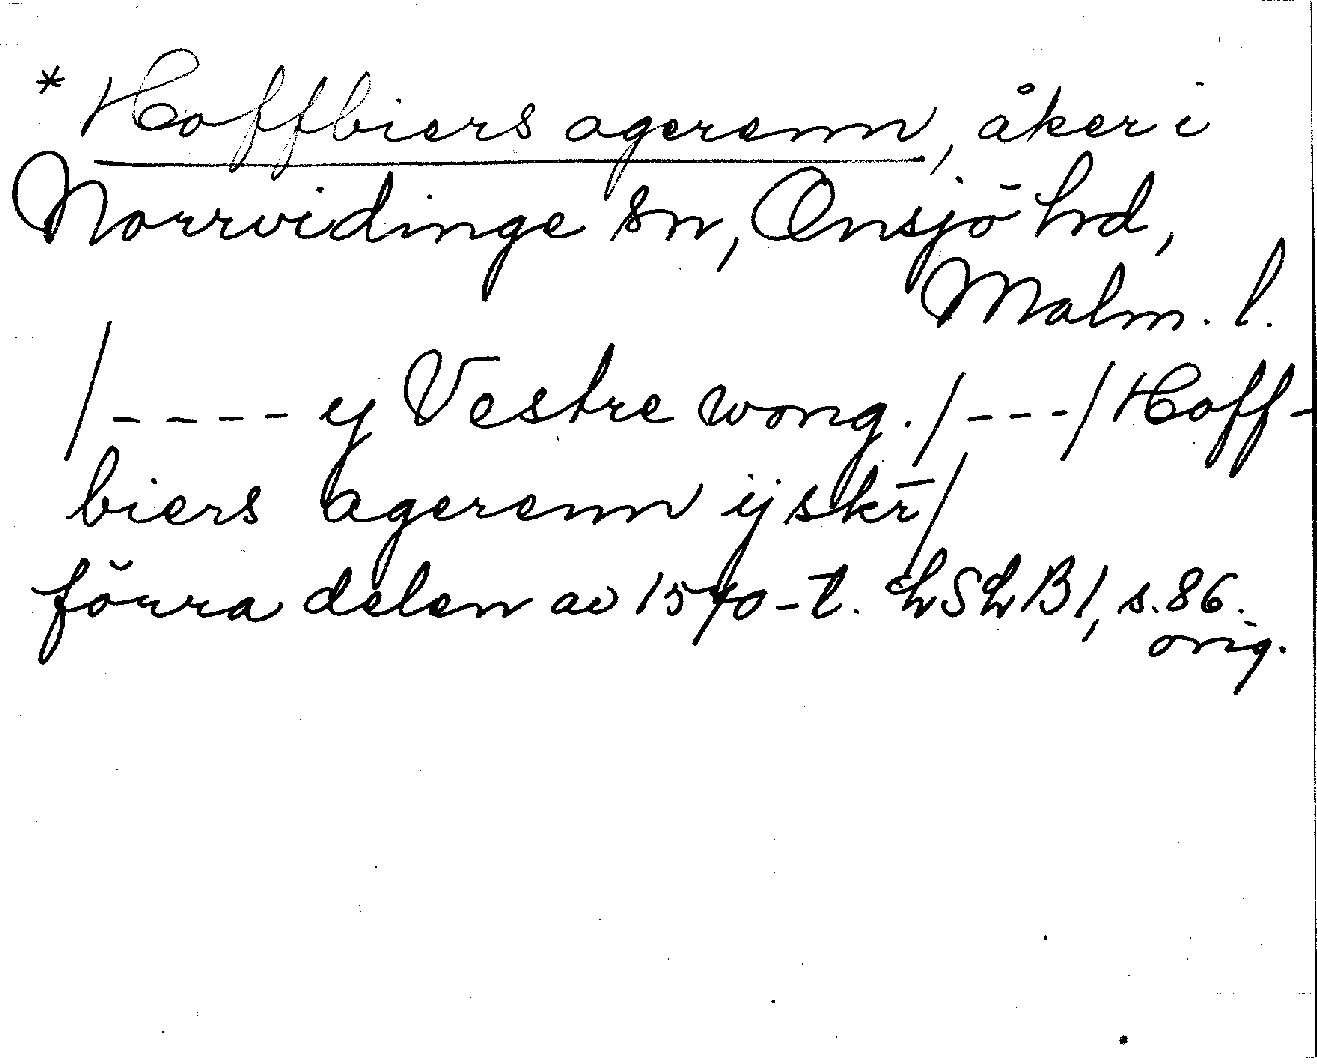 * Hoffbiers agerenn, åker i
Norrvidinge sn, Onsjö hrd,
Malm. l.
/---- y Vestre wong. /---/ Hoff-
biers agerenn ij skr̄/
förra delen av 1540-t. LSLB1, s. 86.
orig.